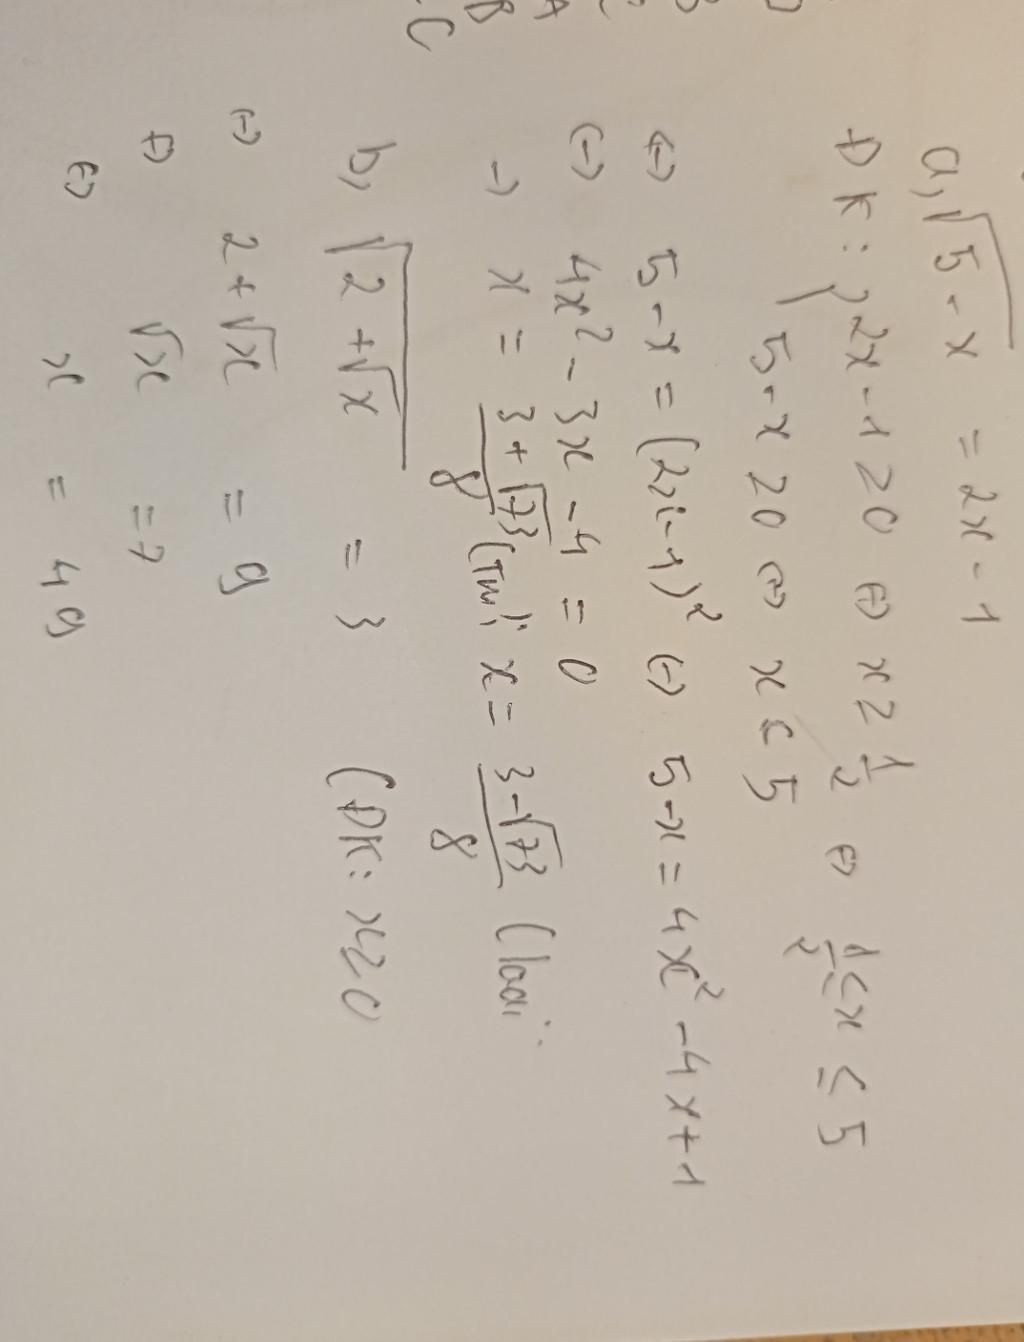 a, √(5-x) = 2x-1
ĐK: { 2x-1 ≥ 0 ⇔ x ≥ 1/2 ⇔ 1/2 ≤ x ≤ 5
5-x ≥ 0 ⇔ x ≤ 5
⇔ 5-x = (2x-1)² ⇔ 5-x = 4x² - 4x+1
⇔ 4x² - 3x - 4 = 0
→ x = (3+√73)/8 (TM); x = (3-√73)/8 (loại
b, √(2+√x) = 3 (ĐK: x ≥ 0
⇔ 2+√x = 9
⇔ √x = 7
⇔ x = 49